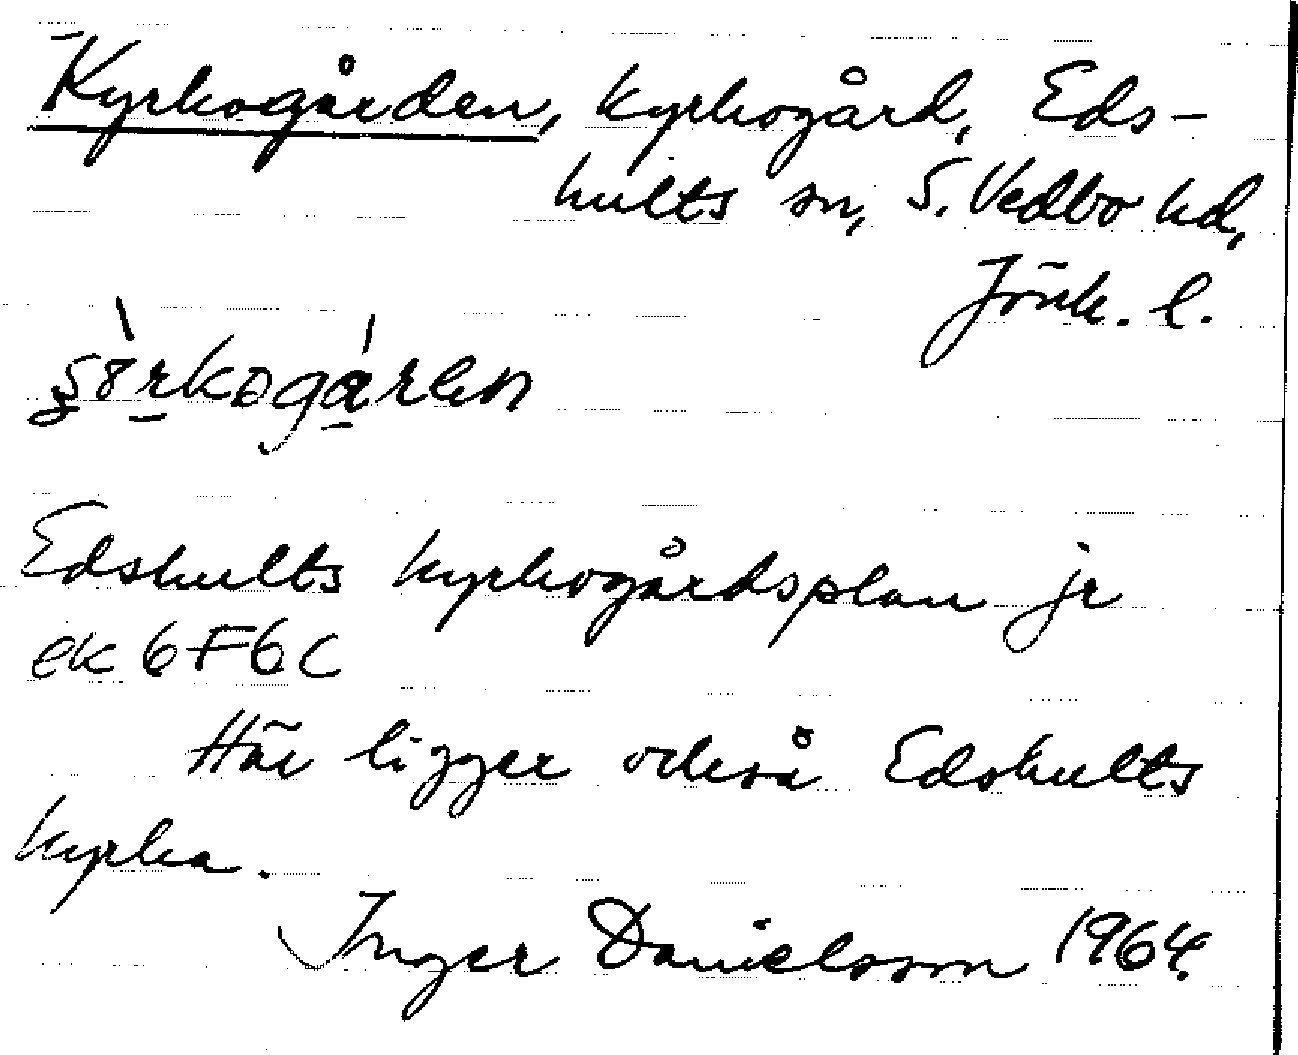 Kyrkogården, kyrkogård, Eds-
hults sn, S. Vedbo hd,
Jönk. l.
Edshults kyrkogårdsplan jr
ek 6F6c
Här ligger också Edshults
kyrka.
Inger Danielsson 1964.